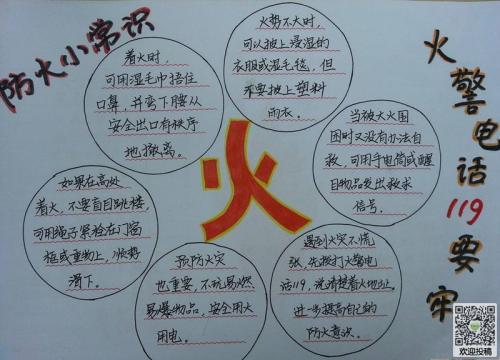 防火小常识
着火时,
可用湿毛巾捂住
口鼻,并弯下腰从
安全出口有秩序
地撤离。
火势不大时,
可以披上浸湿的
衣服或湿毛毯,但
不要披上塑料
雨衣。
当被大火围
困时又没有办法自
救,可用手电筒或醒
目物品发出求救
信号。
如果在高处
着火,不要盲目跳楼,
可用绳子紧拴在门窗
框或重物上,顺势
滑下。
火
预防火灾
也重要,不玩易燃
易爆物品,安全用火
用电。
遇到火灾不慌
张,先拨打火警电
话119,说清楚着火地址。
进一步提高自己的
防火意识。
火警电话119要牢
欢迎投稿